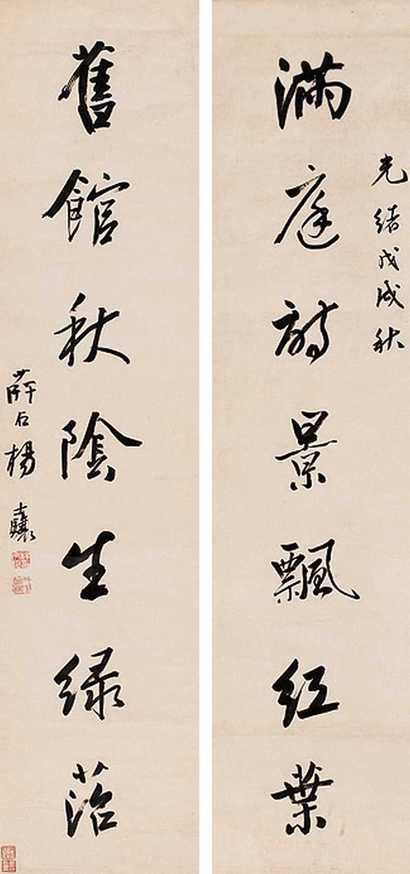 光緒戊戌秋
滿庭詩景飄紅葉
舊館秋陰生綠苔
萍石楊士驤